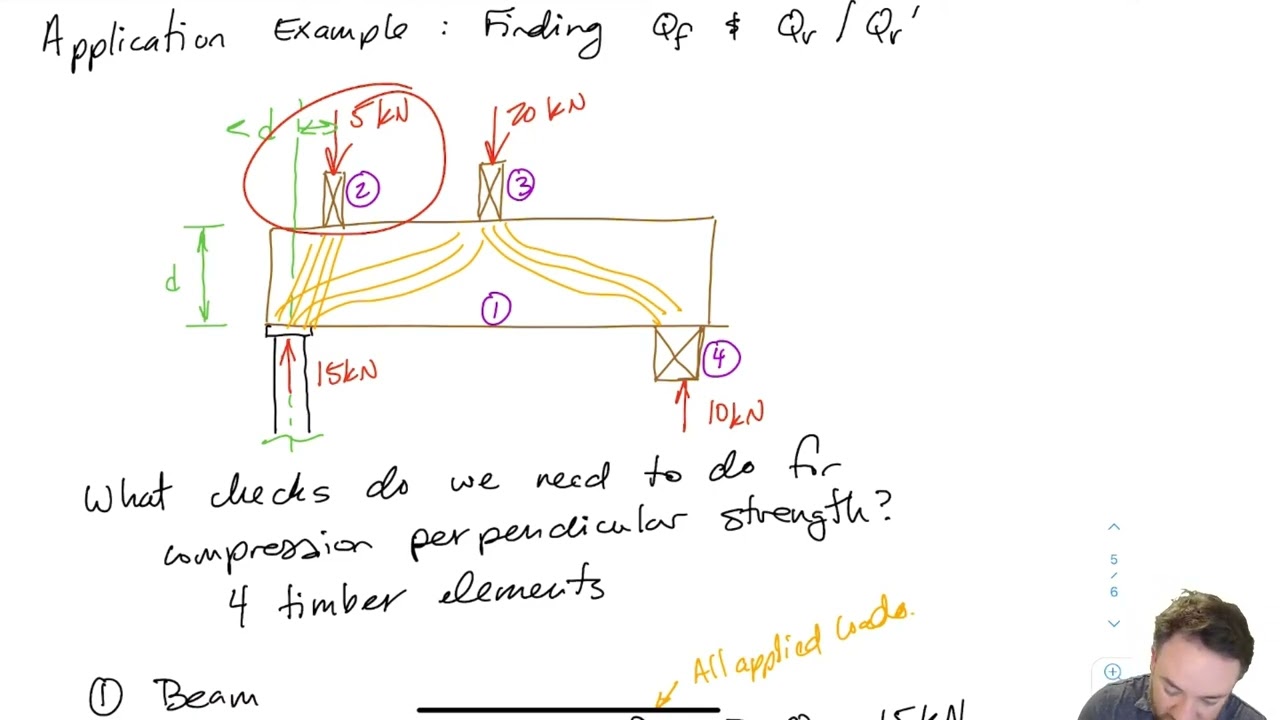 Application Example : Finding Qf & Qr / Qr'
< d
5 kN
20 kN
2
3
d
1
15kN
4
10kN
What checks do we need to do for
compression perpendicular strength?
4 timber elements
5
/
6
All applied loads.
1 Beam
15kN